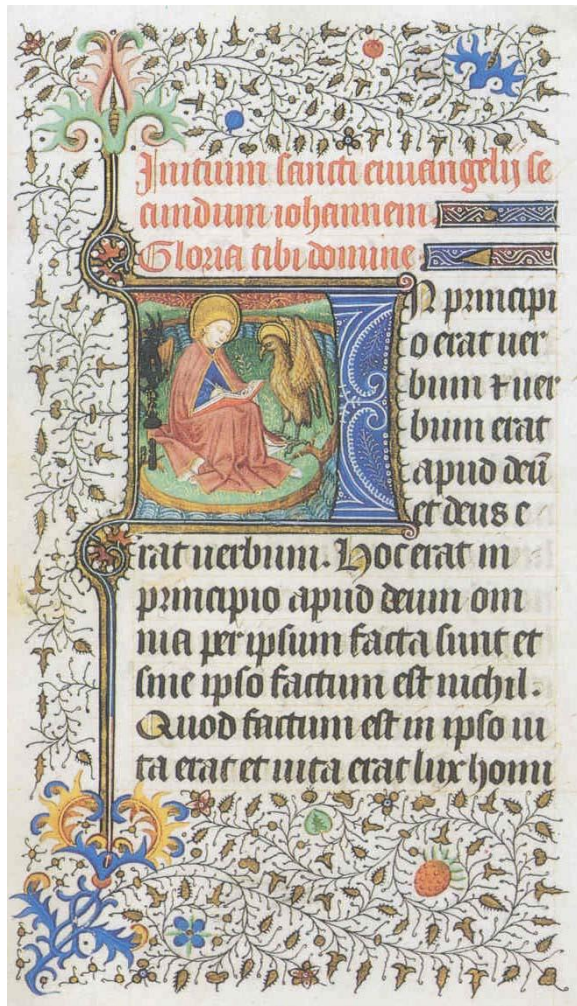 Initium sancti euuangelij se
cundum iohannem.
Gloria tibi domine
IN principi
o erat uer
bum ⁊ uer
bum erat
apud deū
et deus e
rat uerbum. Hoc erat in
principio apud deum om
nia per ipsum facta sunt et
sine ipso factum est nichil.
Quod factum est in ipso ui
ta erat et uita erat lux homi